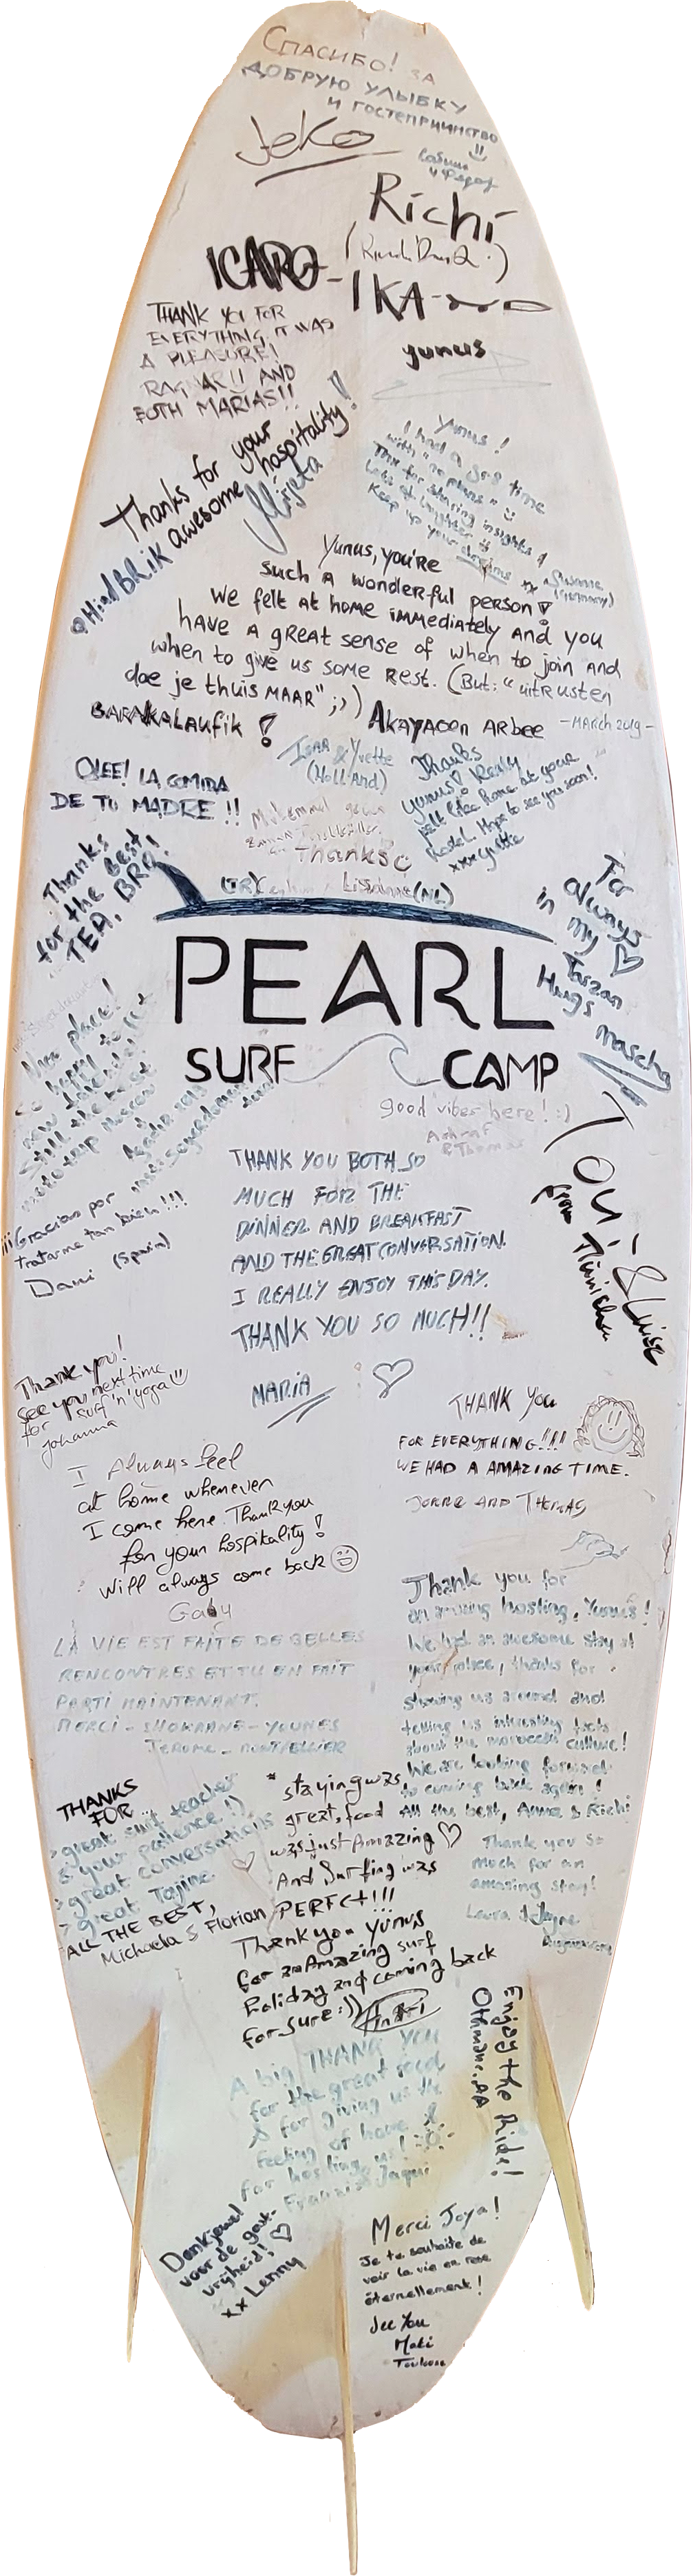 СПАСИБО! ЗА
ДОБРУЮ УЛЫБКУ
И ГОСТЕПРИИМСТВО
Jeko
Richi
ICARO-
IKA
yunus
THANK YOU FOR
EVERYTHING, IT WAS
A PLEASURE!
AND
BOTH MARIAS!!
Thanks for your
awesome hospitality!
Mirjeta
@HindBRIK
Yunus!
I had a gr8 time
with "no plans"
Thx for sharing insights &
Lots of laughter
Keep up your dreams
(Germany)
Yunus, you're
such a wonderful person!
We felt at home immediately and you
have a great sense of when to join and
when to give us some rest. (But: "uitrusten
doe je thuis MAAR" ;))
BARAKALAUFIK !
AKAYAOEN ARbee -MARCH 2019-
& Yvette
(Holland)
OLEE! LA COMIDA
DE TU MADRE !!
Thanks
yunus! Really
felt like home at your
Hostel. Hope to see you soon!
xxx
Thanks
Thanks
for the best
TEA, BRO!
(TR) (NL)
For
always
in my ♡
Tarzan
Hugs
mascha
PEARL
SURF CAMP
Nice place!
good vibes here! :)
& Thomas
THANK YOU BOTH SO
MUCH FOR THE
DINNER AND BREAKFAST
AND THE GREAT CONVERSATION.
I REALLY ENJOY THIS DAY.
THANK YOU SO MUCH!!
MARIA ♡
¡¡¡Gracias por
tratarme tan bien!!!
Dani (Spain)
& Luise
from München
Thank you!
See you next time
for surf'n'yoga
Johanna
THANK YOU
FOR EVERYTHING!!!
WE HAD A AMAZING TIME.
AND THOMAS
I Always feel
at home whenever
I come here. Thank you
for your hospitality!
Will always come back
Gaby
Thank you for
an amazing hosting, Yunus!
We had an awesome stay at
your place, thanks for
showing us around and
telling us interesting facts
about the moroccan culture!
We are looking forward
to coming back again!
All the best, Anna & Richi
LA VIE EST FAITE DE BELLES
RENCONTRES ET TU EN FAIT
PARTI MAINTENANT.
MERCI - SHOKRANE - YOUNES
JEROME - MONTPELLIER
THANKS
FOR...
> great surf teacher
& your patience !)
> great conversations
> great Tajine
ALL THE BEST,
Michaela & Florian
* staying was
great, food
was just Amazing ♡
And Surfing was
PERFCT!!!
Thank you Yunus
for an Amazing surf
holiday and coming back
for sure :))
Thank you so
much for an
amazing stay!
Laura &
Enjoy the Ride!
Othmane.AA
A big THANK YOU
for the great food
& for giving us the
feeling of home &
for hosting us!
& Jaqui
Dankjewel
voor de gast-
vrijheid! ♡
xx Lenny
Merci Joya!
Je te souhaite de
voir la vie en rose
éternellement!
See You
Maki
Toulouse